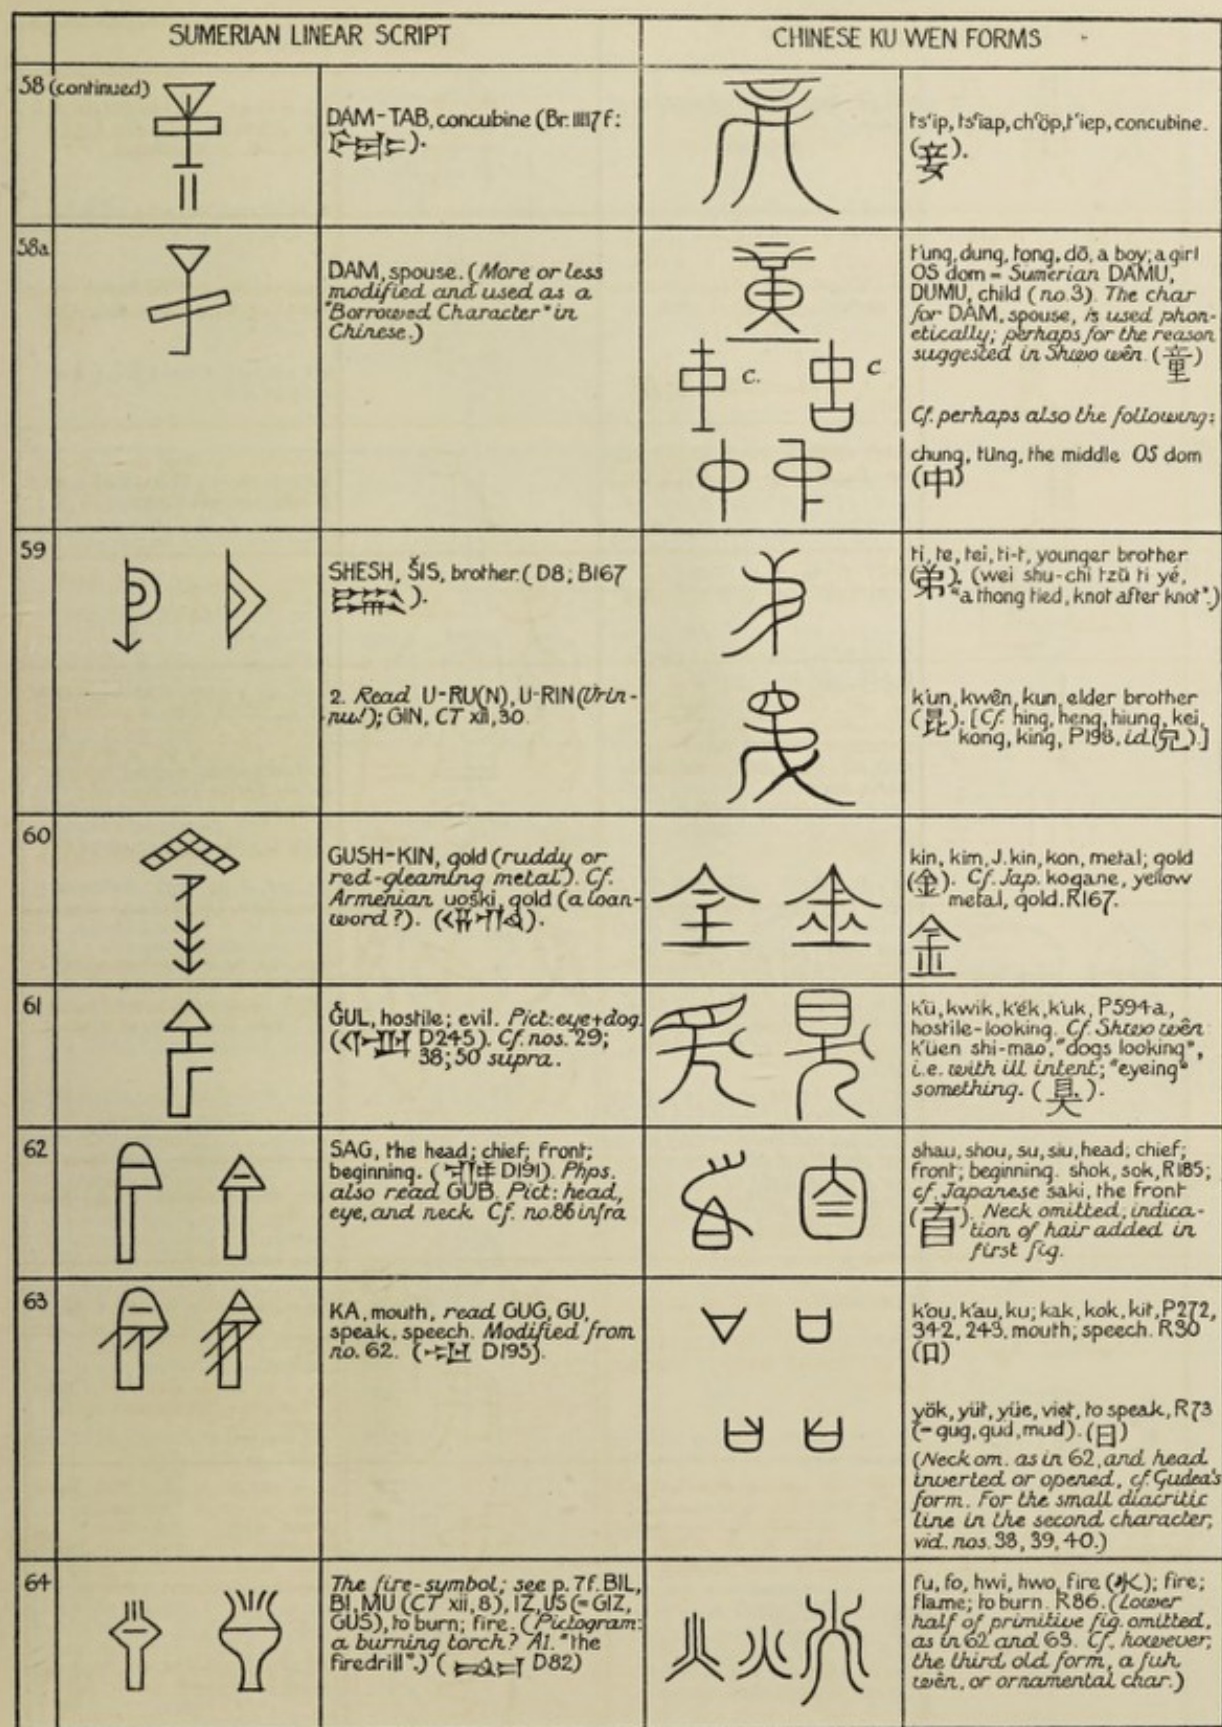 SUMERIAN LINEAR SCRIPT
CHINESE KU WEN FORMS
58 (continued)
DAM-TAB, concubine (Br. 11117 f:
).
ts‘ip, ts‘iap, ch‘öp, t‘iep, concubine.
(妾).
58a
DAM, spouse. (More or less
modified and used as a
"Borrowed Character" in
Chinese.)
t‘ung, dung, tong, dō, a boy; a girl
OS dom = Sumerian DAMU,
DUMU, child (no. 3). The char
for DAM, spouse, is used phon-
etically; perhaps for the reason
suggested in Shwo wên. (童)
c.
c
Cf. perhaps also the following:
chung, tüng, the middle OS dom
(中)
59
SHESH, ŠIS, brother. (D8; B167
).
ti, te, tei, ti-t, younger brother
(弟). (wei shu-chi tzŭ ti yé,
"a thong tied, knot after knot".)
2. Read U-RU(N), U-RIN (Urin-
nu!); GIN, CT xii, 30.
k‘un, kwên, kun, elder brother
(昆). [Cf. hing, heng, hiung, kei,
kong, king, P198, id. (兄).]
60
GUSH-KIN, gold (ruddy or
red-gleaming metal). Cf.
Armenian uoski, gold (a loan-
word?). ( ).
kin, kim, J. kin, kon, metal; gold
(金). Cf. Jap. kogane, yellow
metal, gold. R167.
金
61
ĞUL, hostile; evil. Pict: eye + dog.
( D245). Cf. nos. 29;
38; 50 supra.
k‘ü, kwik, k‘ék, k‘uk, P594a,
hostile-looking. Cf. Shwo wên
k‘üen shi-mao, "dogs looking",
i.e. with ill intent; "eyeing"
something. (狊).
62
SAG, the head; chief; front;
beginning. ( D191). Phps.
also read GUB. Pict: head,
eye, and neck. Cf. no. 86 infra
shau, shou, su, siu, head; chief;
front; beginning. shok, sok, R185;
cf. Japanese saki, the front
(首). Neck omitted; indica-
tion of hair added in
first fig.
63
KA, mouth, read GUG, GU,
speak, speech. Modified from
no. 62. ( D195).
k‘ou, k‘au, ku; kak, kok, kit, P272,
342, 243, mouth; speech. R30
(口)
yök, yüt, yüe, viet, to speak, R73
(= gug, gud, mud). (曰)
(Neck om. as in 62, and head
inverted or opened, cf. Gudea's
form. For the small diacritic
line in the second character,
vid. nos. 38, 39, 40.)
64
The fire-symbol; see p. 7 f. BIL,
BI, MU (CT xii, 8), IZ, US (= GIZ,
GUS), to burn; fire. (Pictogram:
a burning torch? Al. "the
firedrill".) ( D82)
fu, fo, hwi, hwo, fire (火); fire;
flame; to burn. R86. (Lower
half of primitive fig. omitted,
as in 62 and 63. Cf., however,
the third old form, a fuh
wên, or ornamental char.)